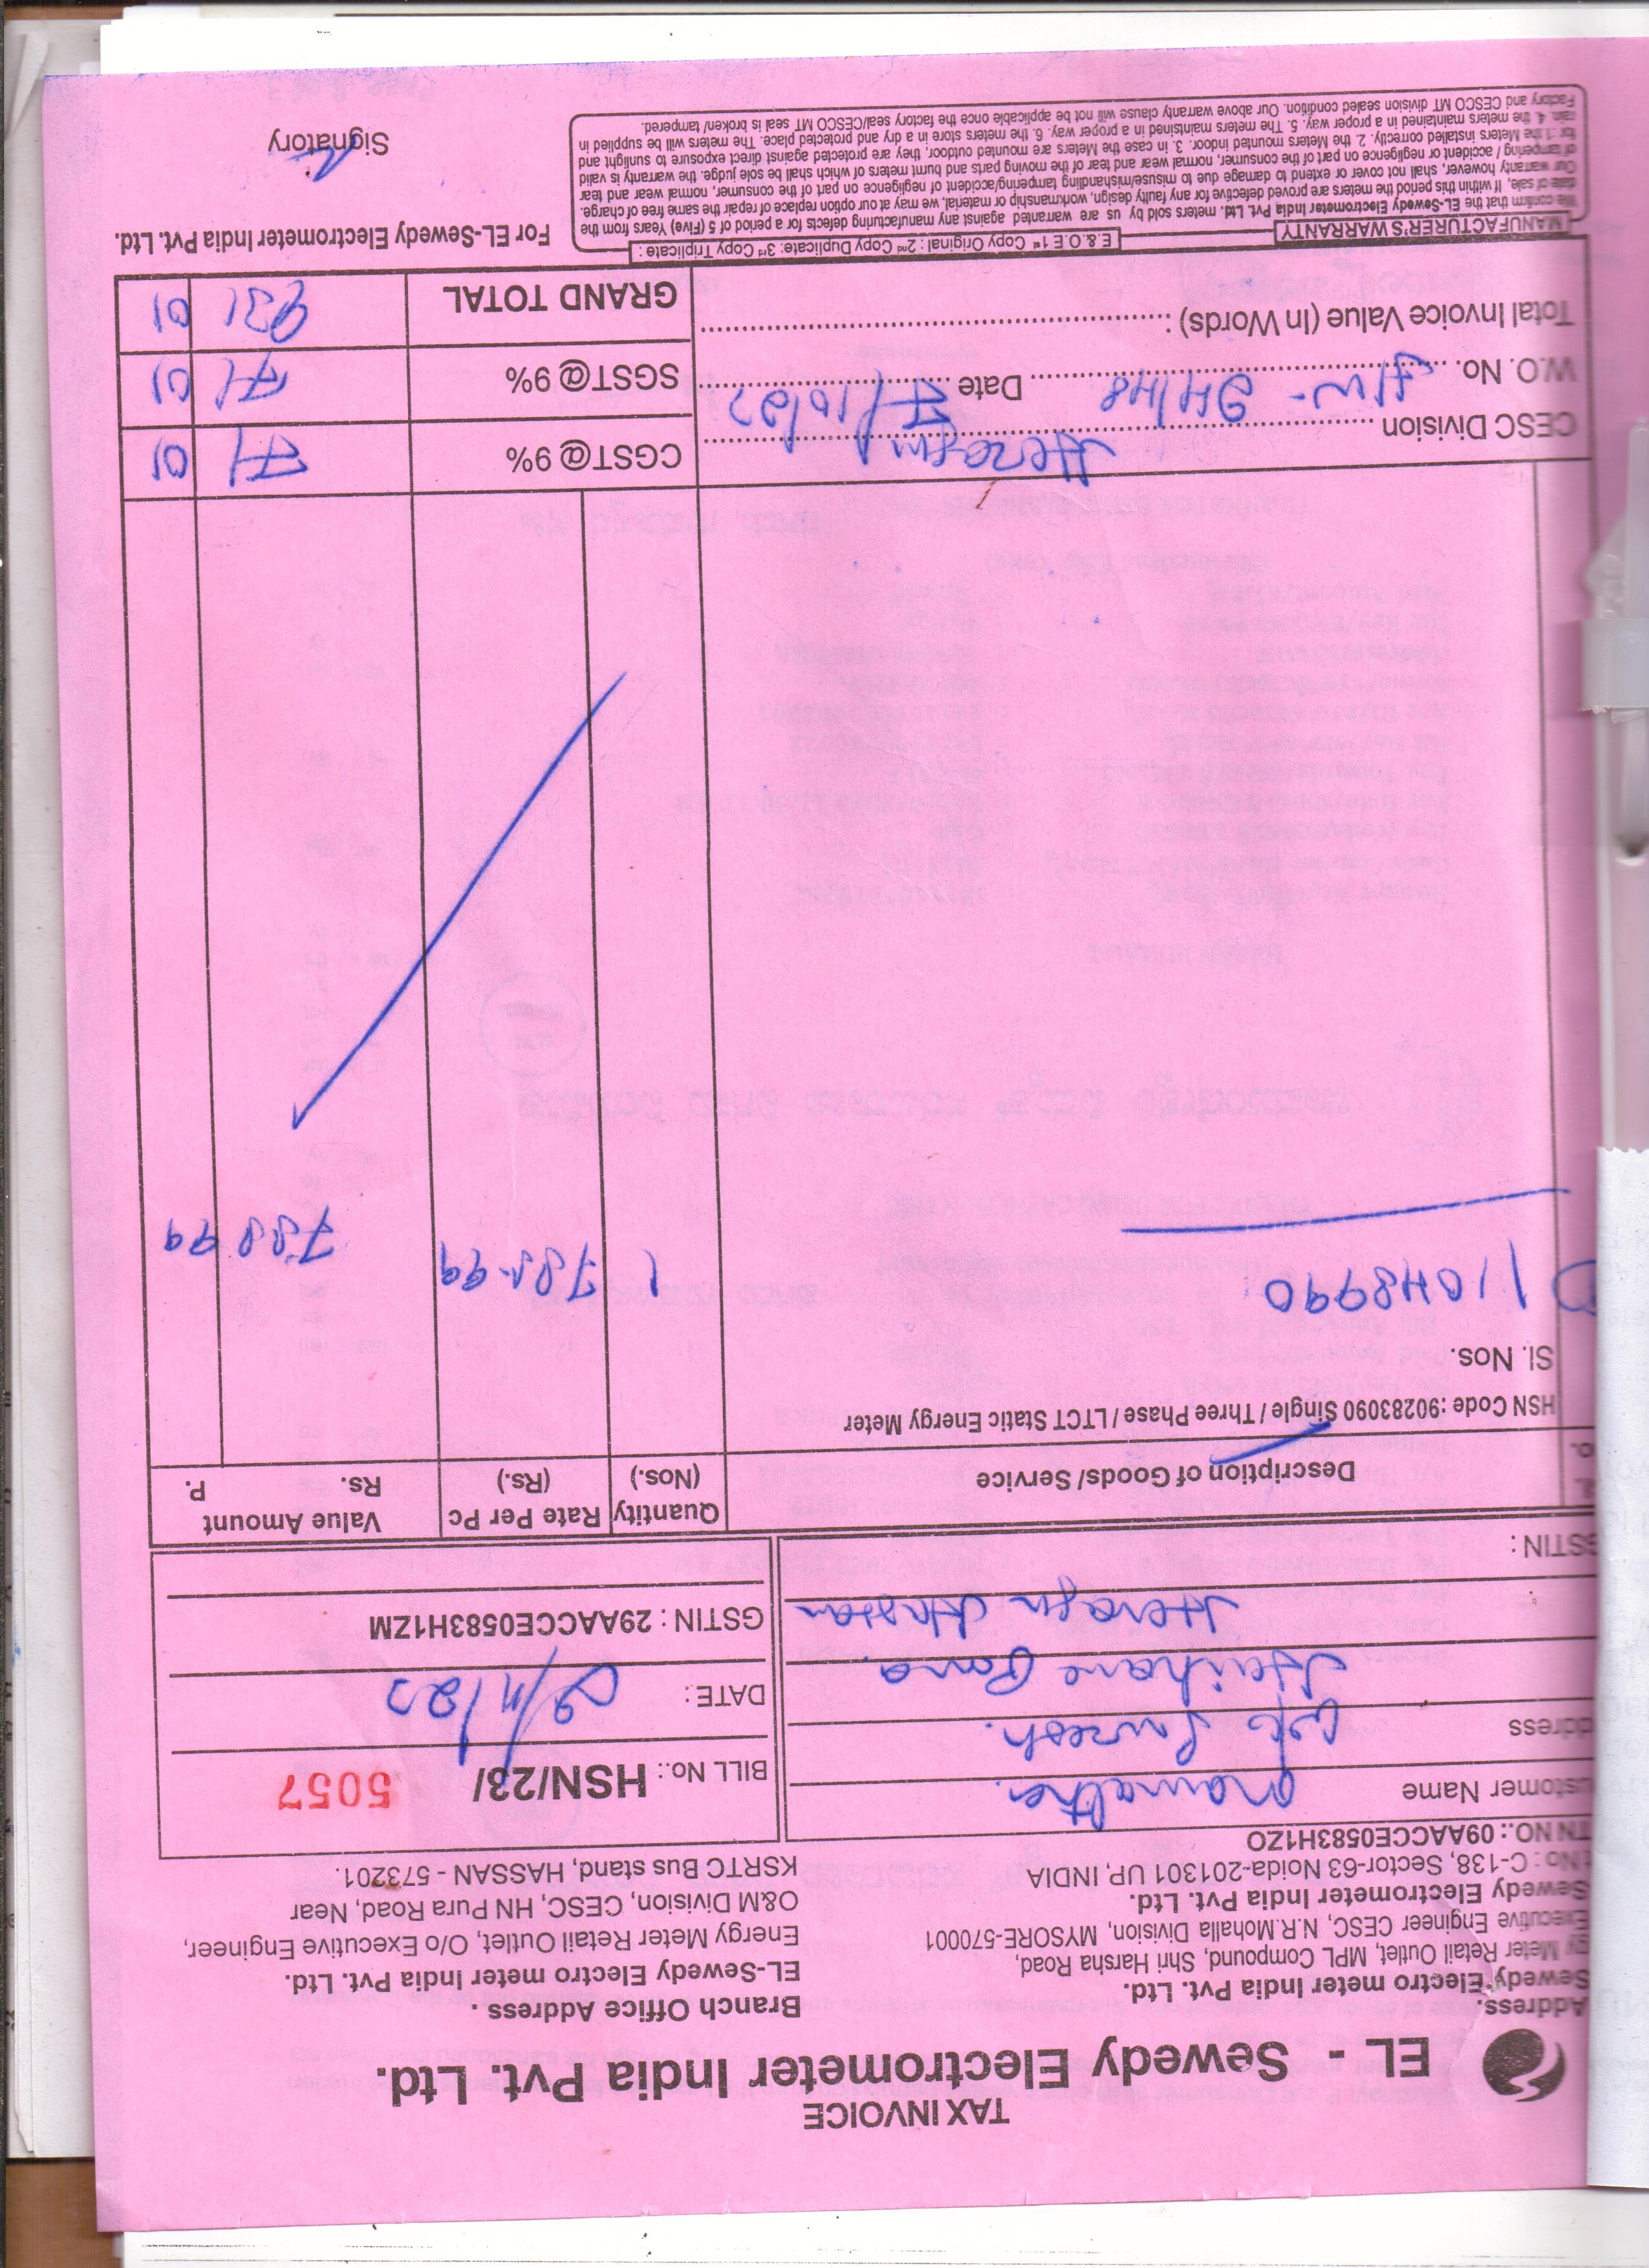 TAX INVOICE
EL - Sewedy Electrometer India Pvt. Ltd.
Address.
Sewedy Electro meter India Pvt. Ltd.
Meter Retail Outlet, MPL Compound, Shri Harsha Road,
Executive Engineer CESC, N.R.Mohalla Division, MYSORE-570001
Sewedy Electrometer India Pvt. Ltd.
No : C-138, Sector-63 Noida-201301 UP, INDIA
TN NO.: 09AACCE0583H1ZO
Branch Office Address .
EL-Sewedy Electro meter India Pvt. Ltd.
Energy Meter Retail Outlet, O/o Executive Engineer,
O&M Division, CESC, HN Pura Road, Near
KSRTC Bus stand, HASSAN - 573201.
ustomer Name Mamatha.
ddress
W/o Suresh.
Hassan
STIN :
BILL No.: HSN/23/ 5057
DATE :
GSTIN : 29AACCE0583H1ZM
Description of Goods/ Service
Quantity (Nos.)
Rate Per Pc (Rs.)
Value Amount
Rs. P.
HSN Code :90283090 Single / Three Phase / LTCT Static Energy Meter
Sl. Nos.
11048990 1 788-99 788 99
CESC Division
W.O. No. Date 7/10/22
Total Invoice Value (In Words) :
CGST@ 9% 71 01
SGST@ 9% 71 01
GRAND TOTAL 931 01
MANUFACTURER'S WARRANTY
E.&.O.E 1st Copy Original : 2nd Copy Duplicate: 3rd Copy Triplicate :
We confirm that the EL-Sewedy Electrometer India Pvt. Ltd. meters sold by us are warranted against any manufacturing defects for a period of 5 (Five) Years from the
date of sale, If within this period the meters are proved defective for any faulty design, workmanship or material, we may at our option replace of repair the same free of charge.
Our warranty however, shall not cover or extend to damage due to misuse/mishandling tampering/accident of negligence on part of the consumer, normal wear and tear
of tampering / accident or negligence on part of the consumer, normal wear and tear of the moving parts and burnt meters of which shall be sole judge. the warranty is valid
for :1.the Meters installed correctly. 2. the Meters mounted indoor. 3. in case the Meters are mounted outdoor, they are protected against direct exposure to sunlight and
rain. 4. the meters maintained in a proper way. 5. The meters maintined in a proper way. 6. the meters store in a dry and protected place. The meters will be supplied in
Factory and CESCO MT division sealed condition. Our above warranty clause will not be applicable once the factory seal/CESCO MT seal is broken/ tampered.
For EL-Sewedy Electrometer India Pvt. Ltd.
Signatory